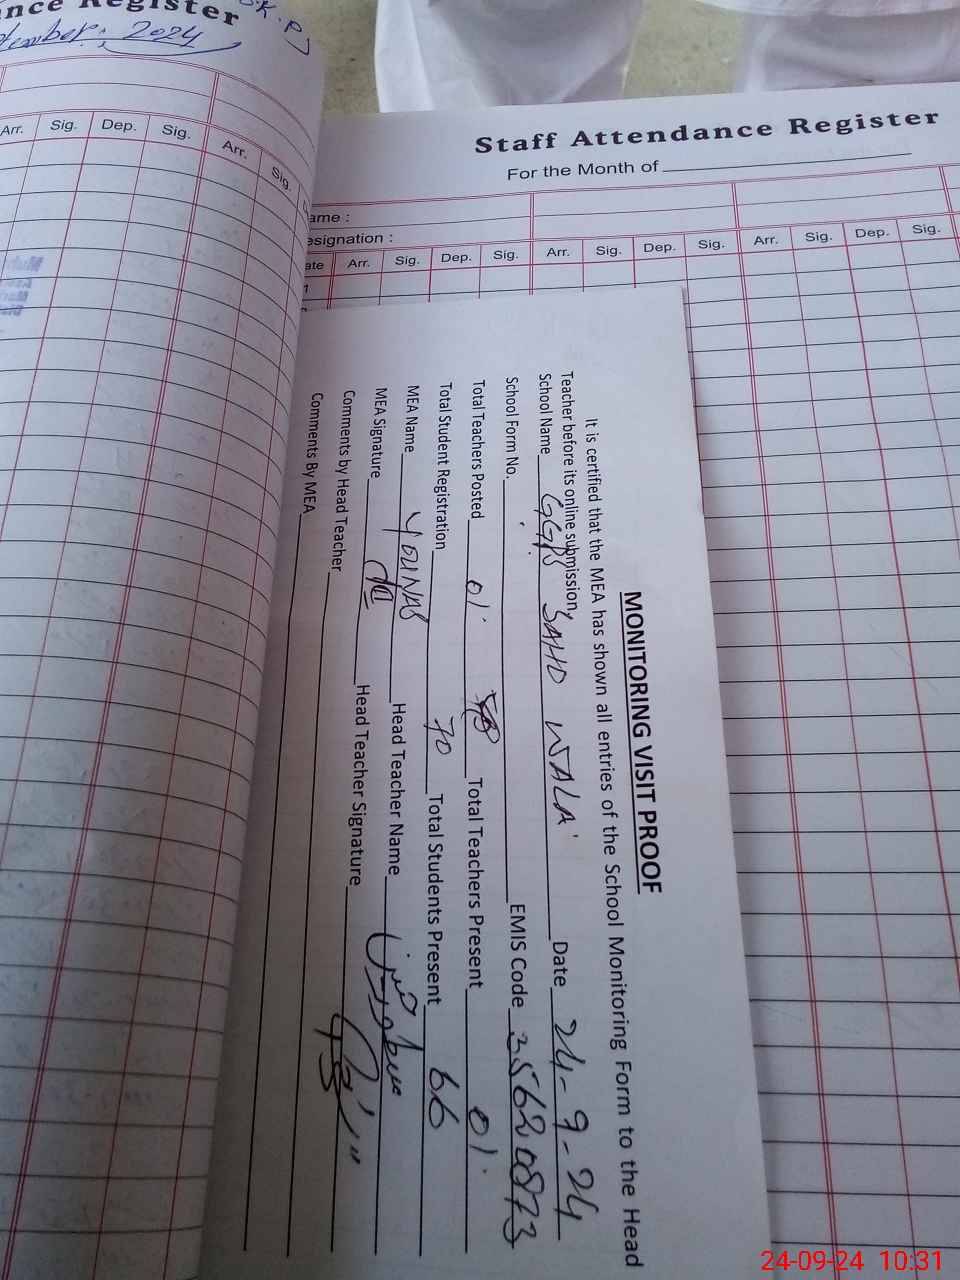 Register
2024
Arr. Sig. Dep. Sig. Arr. Sig.
Staff Attendance Register
For the Month of
ame :
esignation :
ate Arr. Sig. Dep. Sig. Arr. Sig. Dep. Sig. Arr. Sig. Dep. Sig.
1
MONITORING VISIT PROOF
It is certified that the MEA has shown all entries of the School Monitoring Form to the Head
Teacher before its online submission.
School Name GGPS SAHO WALA Date 24-9-24
School Form No. EMIS Code 35620873
Total Teachers Posted 01 Total Teachers Present 01
Total Student Registration 70 Total Students Present 66
MEA Name YOUNAS Head Teacher Name
MEA Signature Head Teacher Signature
Comments by Head Teacher
Comments By MEA
24-09-24 10:31